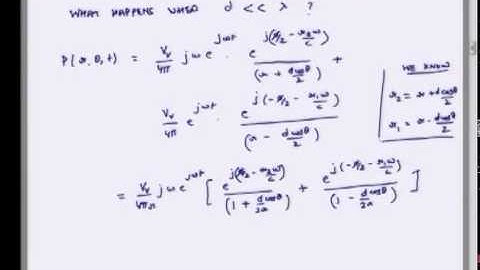 WHAT HAPPENS WHEN d << λ ?
P(r, θ, t) = V_v/4π jω e^{jωt} · e^{j(π/2 - r_2ω/c)}/(r + dcosθ/2) +
V_v/4π e^{jωt} · e^{j(-π/2 - r_1ω/c)}/(r - dcosθ/2)
WE KNOW
r_2 = r + dcosθ/2
r_1 = r - dcosθ/2
= V_v/4πr jω e^{jωt} [ e^{j(π/2 - r_2ω/c)}/(1 + dcosθ/2r) + e^{j(-π/2 - r_1ω/c)}/(1 - dcosθ/2r) ]